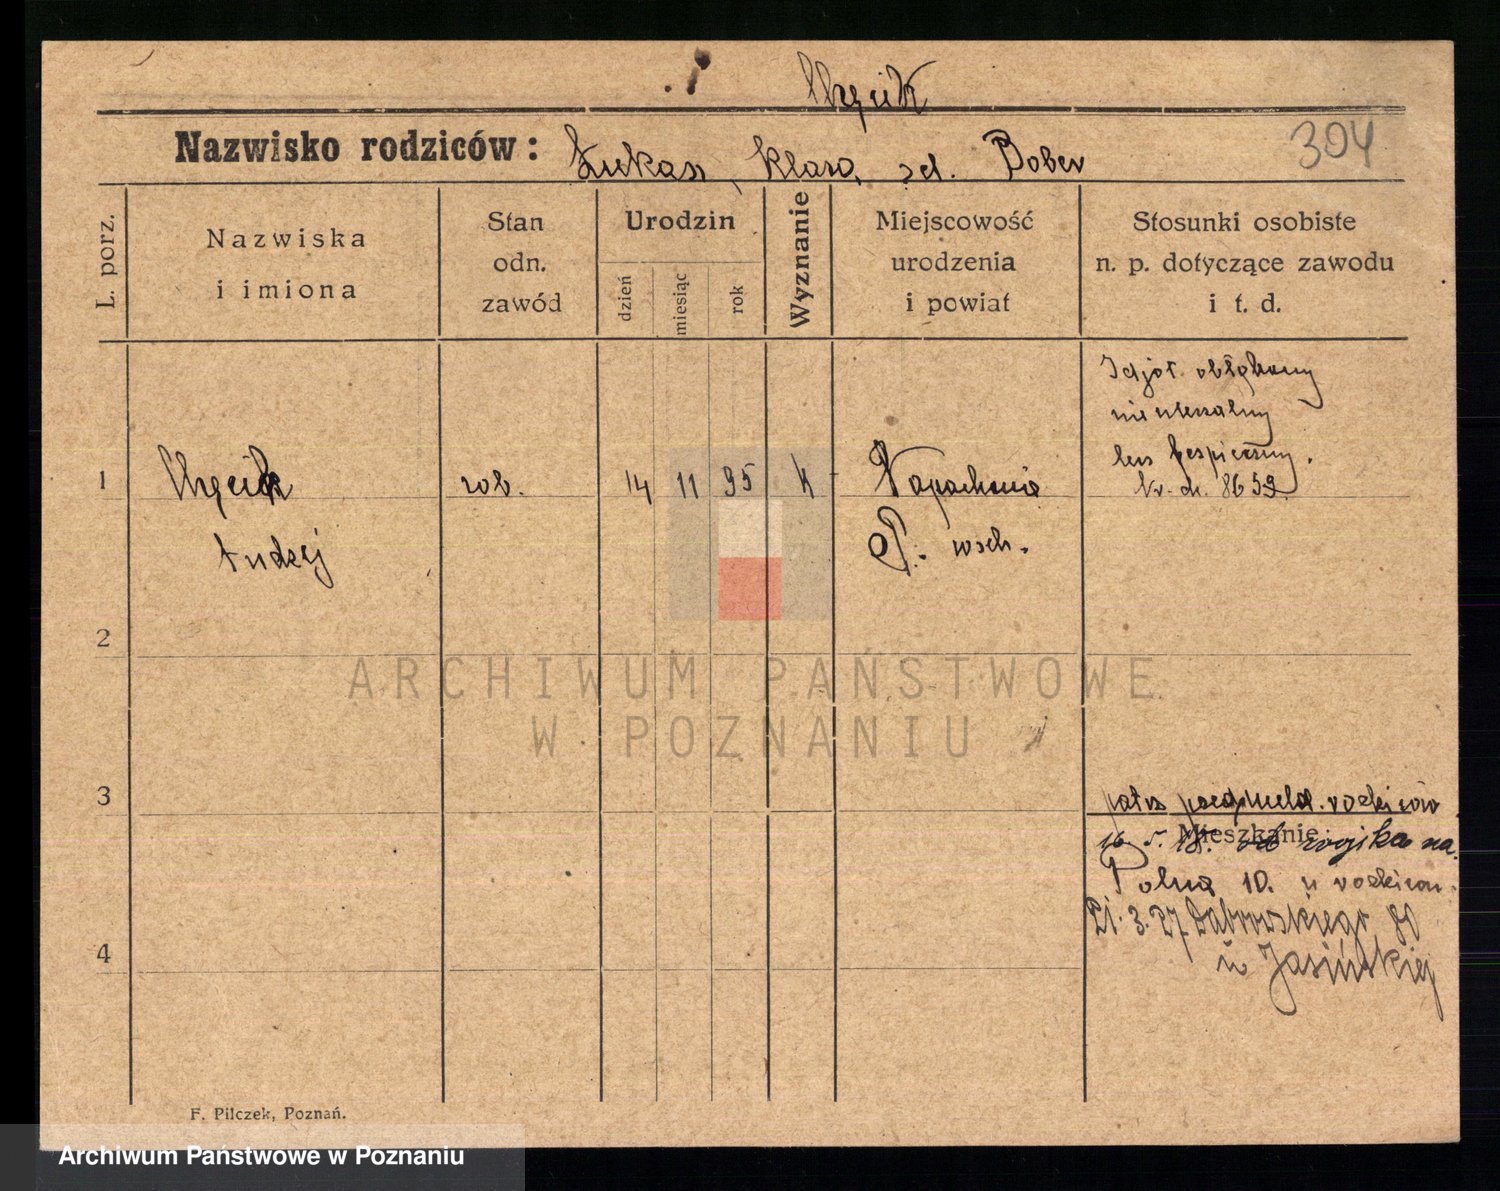 304
Nazwisko rodziców:
Łukasz, Klara, zd. Bober
L. porz.
Nazwiska
i imiona
Stan
odn.
zawód
Urodzin
dzień
miesiąc
rok
Wyznanie
Miejscowość
urodzenia
i powiat
Stosunki osobiste
n. p. dotyczące zawodu
i t. d.
Idjot. obłąkany
nieuleczalny
lecz bespieczny.
Nr. ch. 8659
1
rob.
14 11 95 K
Napachanie
P. wsch.
Andrzej
2
ARCHIWUM PAŃSTWOWE
W POZNANIU
3
patrz rodziców
Mieszkanie:
16. 5. 18. od wojska na
Polna 10. u rodziców.
21. 3. 27 Dąbrowskiego 80
u Jasińskiej
4
F. Pilczek, Poznań.
Archiwum Państwowe w Poznaniu